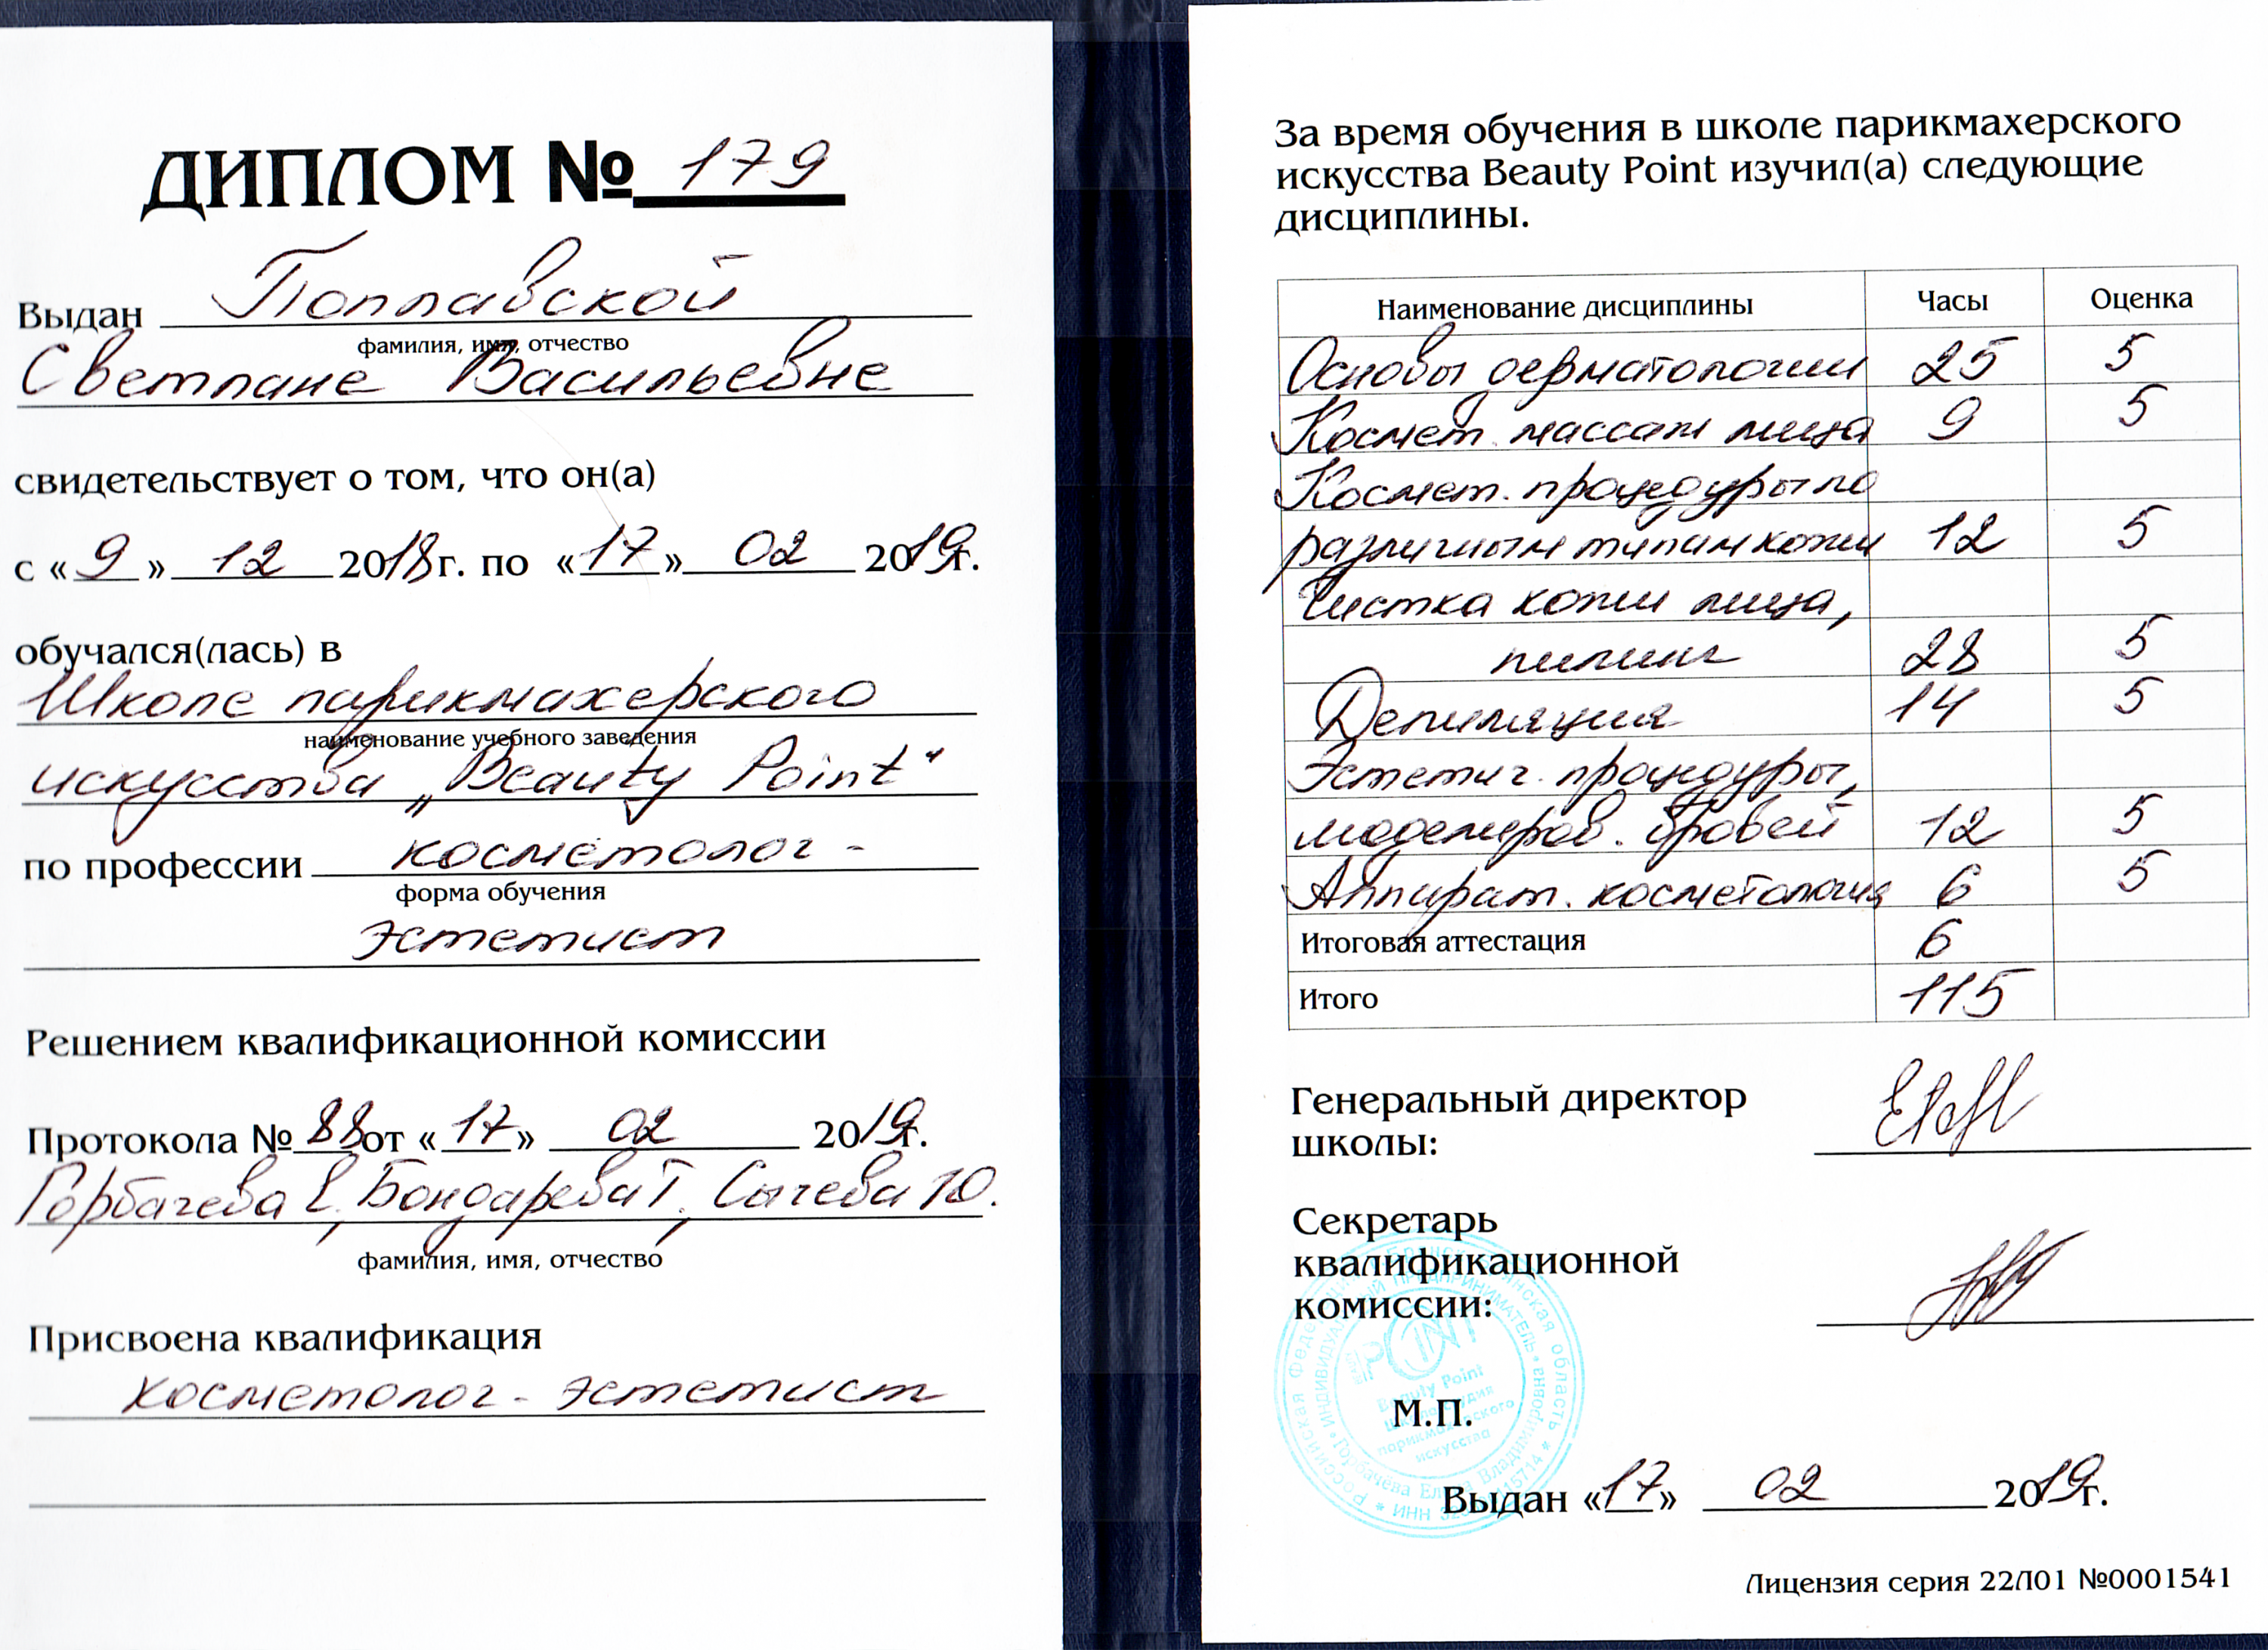 ДИПЛОМ № 179
Выдан Поплавской
фамилия, имя, отчество
Светлане Васильевне
свидетельствует о том, что он(а)
с «9» 12 2018г. по «17» 02 2019г.
обучался(лась) в
Школе парикмахерского
наименование учебного заведения
искусства „Beauty Point“
по профессии косметолог -
форма обучения
эстетист
Решением квалификационной комиссии
Протокола № 88 от «17» 02 2019г.
Горбачева Е, Бондарева Т, Сычева Ю.
фамилия, имя, отчество
Присвоена квалификация
косметолог - эстетист
За время обучения в школе парикмахерского
искусства Beauty Point изучил(а) следующие
дисциплины.
Наименование дисциплины Часы Оценка
Основы дерматологии 25 5
Космет. массаж лица 9 5
Космет. процедуры по
различным типам кожи 12 5
Чистка кожи лица,
пилинг 28 5
Депиляция 14 5
Эстетич. процедуры,
моделиров. бровей 12 5
Аппарат. косметология 6 5
Итоговая аттестация 6
Итого 115
Генеральный директор
школы:
Секретарь
квалификационной
комиссии:
Российская Федерация Брянская область
ИНДИВИДУАЛЬНЫЙ ПРЕДПРИНИМАТЕЛЬ
POINT
Beauty Point
парикмахерского
искусства
Горбачева Владимировна
ИНН
М.П.
Выдан «17» 02 2019г.
Лицензия серия 22Л01 №0001541